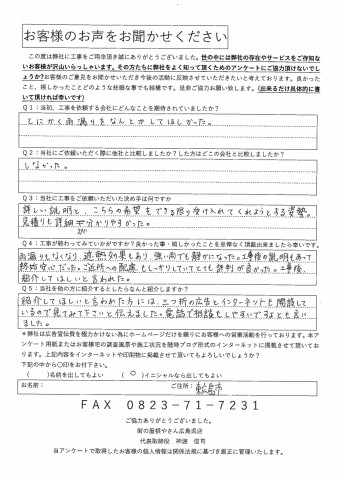 お客様のお声をお聞かせください
この度は弊社に工事をご用命頂き誠にありがとうございました。世の中には弊社の存在やサービスをご存知な
いお客様が沢山いらっしゃいます。その方たちに弊社をよく知って頂くためのアンケートにご協力頂けないでし
ょうか？お客様のご意見をお聞かせいただき今後の活動に反映させていただきたいと考えております。良かった
こと、嬉しかったことどのような些細な事でも結構です。是非ご協力お願い致します。（出来るだけ具体的に書
いて頂ければ幸いです）
Q１：当初、工事を依頼する会社にどんなことを期待されていましたか？
とにかく雨漏りをなんとかしてほしかった。
Q２：当社にご依頼いただく際に他社と比較しましたか？した方はどこの会社と比較しましたか？
しなかった。
Q３：当社に工事をご依頼いただいた決め手は何ですか
詳しい説明と、こちらの希望をできる限り受け入れてくれようとする姿勢。
見積りも詳細が分かりやすかった。
Q４：工事が終わってみていかがですか？良かった事・嬉しかったことを忌憚なく頂戴出来ましたら幸いです。
雨漏りもなくなり、遮熱効果もあり、強い雨でも静かになった。工事後の説明もあって
終始安心だった。ご近所への配慮もしっかりしていてとても評判が良かった。工事後、
紹介してほしいと言われた。
Q５：当社を他の方に紹介するとしたらなんと紹介しますか？
紹介してほしいと言われた方には、三つ折の広告とインターネットも開設して
いるので見てみて下さいと伝えました。電話で相談もしやすいですよとも言い
ました。
＊弊社は広告宣伝費を極力かけない為にホームページだけを頼りにお客様への営業活動を行っております。本ア
ンケート用紙またはお客様宅の調査風景や施工状況を随時ブログ形式のインターネットに掲載させて頂いてお
ります。上記内容をインターネットや印刷物に掲載させて頂いてもよろしいでしょうか？
下記の中から〇印をお付下さい。
（　）名前を出してもよい　（〇）イニシャルなら出してもよい
お名前：　ご住所：東広島市
FAX　0823-71-7231
ご協力ありがとうございました。
街の屋根やさん広島呉店
代表取締役　神渡　信司
当アンケートで取得したお客様の個人情報は関係法規に基づき厳正に管理いたします。